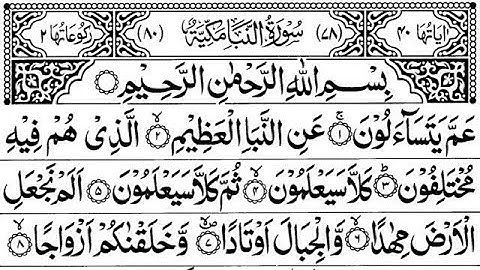 اٰیَاتُهَا ۴۰ (۷۸) سُوْرَۃُ النَّبَاِ مَکِّیَّۃٌ (۸۰) رُکُوْعَاتُهَا ۲
بِسْمِ اللّٰهِ الرَّحْمٰنِ الرَّحِیْمِ
عَمَّ یَتَسَآءَلُوْنَ ۱ عَنِ النَّبَاِ الْعَظِیْمِ ۲ الَّذِیْ هُمْ فِیْهِ
مُخْتَلِفُوْنَ ۳ کَلَّا سَیَعْلَمُوْنَ ۴ ثُمَّ کَلَّا سَیَعْلَمُوْنَ ۵ اَلَمْ نَجْعَلِ
الْاَرْضَ مِهٰدًا ۶ وَّالْجِبَالَ اَوْتَادًا ۷ وَّخَلَقْنٰکُمْ اَزْوَاجًا ۸